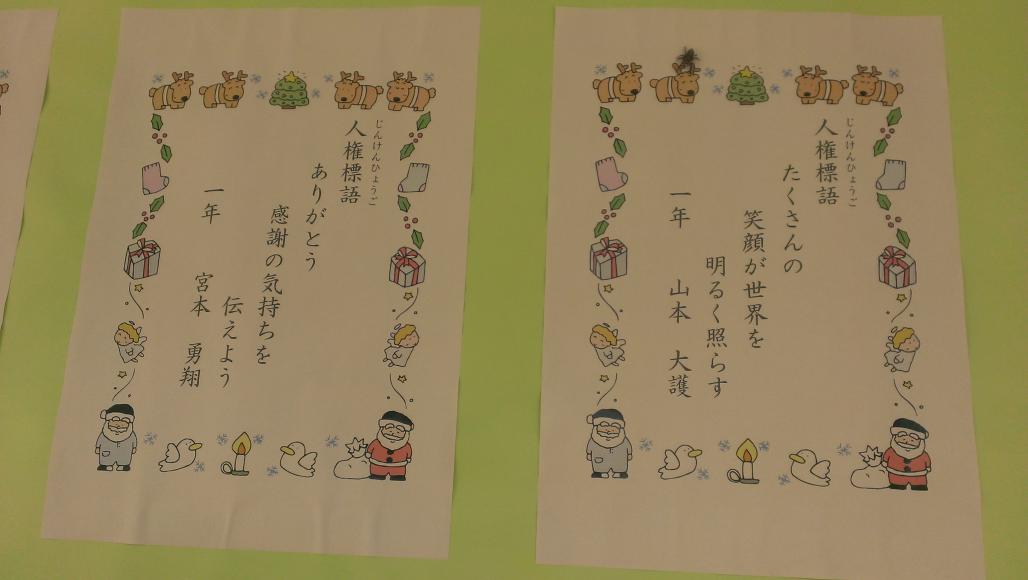 人権標語
じんけんひょうご
ありがとう
感謝の気持ちを
伝えよう
一年 宮本 勇翔
人権標語
じんけんひょうご
たくさんの
笑顔が世界を
明るく照らす
一年 山本 大護